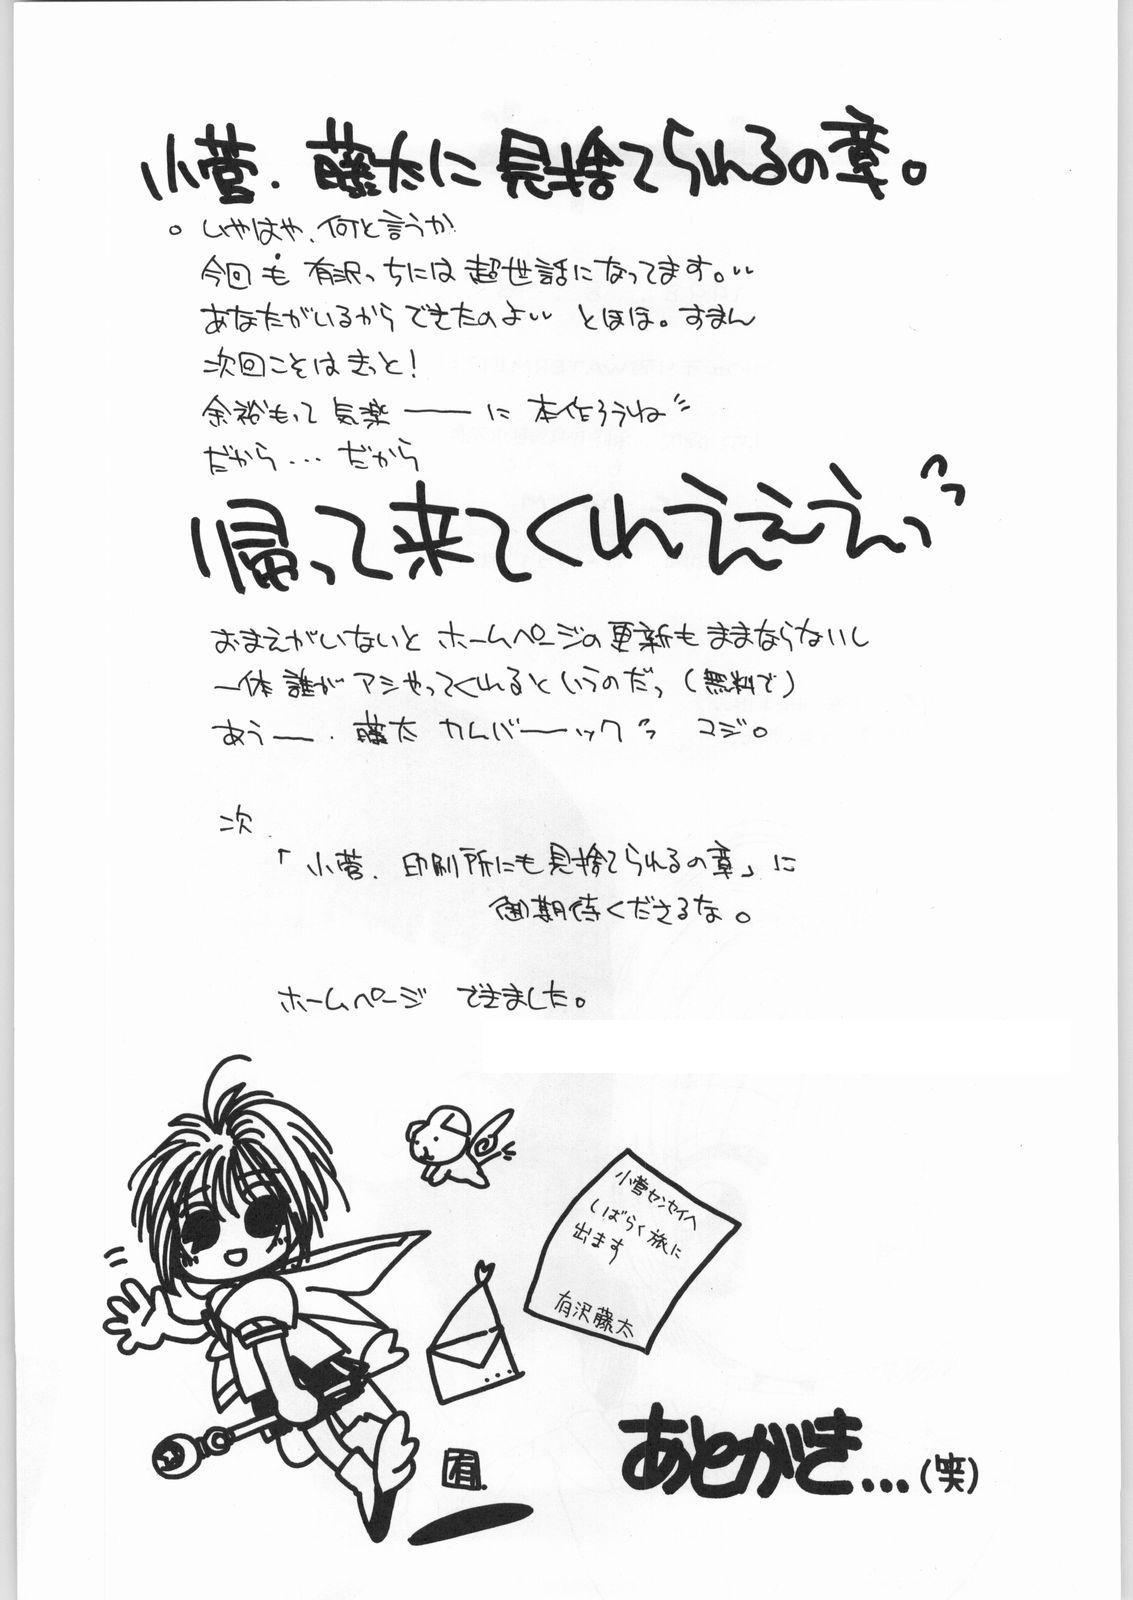 小菅、藤太に見捨てられるの章。
。いやはや、何と言うか
今回も有沢っちには超世話になってます。、、
あなたがいるからできたのよ、、とほほ。すまん
次回こそはきっと！
余裕もって気楽――に本作ろうね
だから…だから
帰って来てくれえええっ
おまえがいないとホームページの更新もままならないし
一体誰がアシやってくれるというのだっ（無料で）
あうー、藤太カムバーックっ コジ。
次、
「小菅、印刷所にも見捨てられるの章」に
御期待くださるな。
ホームページ できました。
小菅センセイへ
しばらく旅に
出ます
有沢藤太
有
あとがき…（笑）